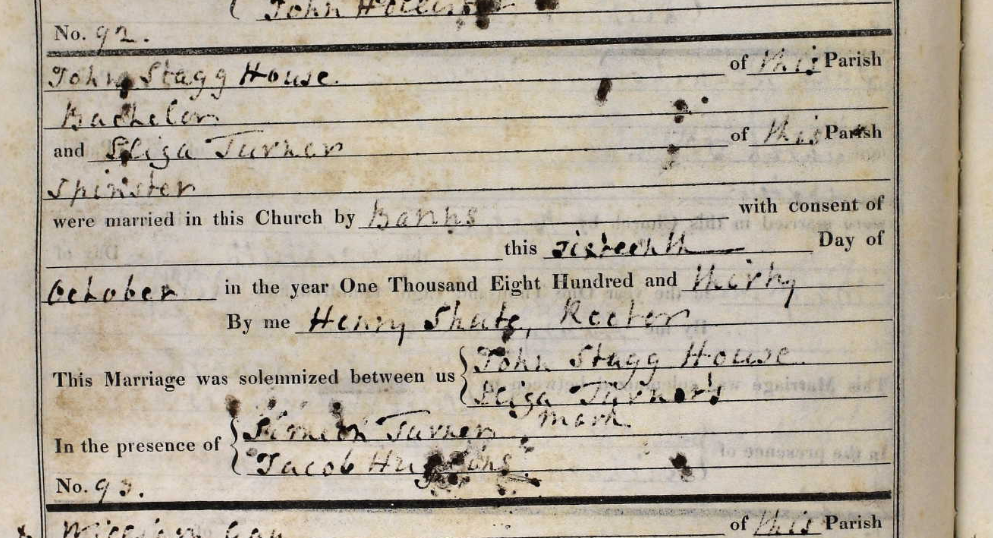 John
No. 92.
John Stagg House of this Parish
Bachelor
and Eliza Turner of this Parish
Spinster
were married in this Church by Banns with consent of
this sixteenth Day of
October in the year One Thousand Eight Hundred and thirty
By me Henry Shute, Rector
This Marriage was solemnized between us { John Stagg House
Eliza Turner's
mark
In the presence of { Turner
Jacob
No. 93.
William of this Parish